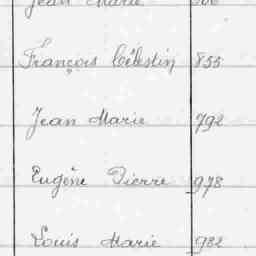 Jean Marie
François Célestin 855
Jean Marie 792
Eugène Pierre 978
Louis Marie 982